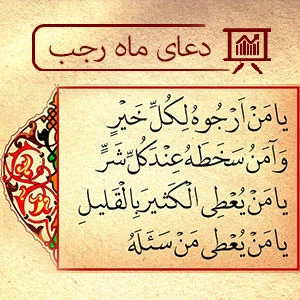 دعای ماه رجب
يا مَنْ اَرْجُوهُ لِكُلِّ خَيْرٍ
وَ آمَنُ سَخَطَهُ عِنْدَ كُلِّ شَرٍّ
يا مَنْ يُعْطِى الْكَثيرَ بِالْقَليلِ
يا مَنْ يُعْطى مَنْ سَئَلَهُ